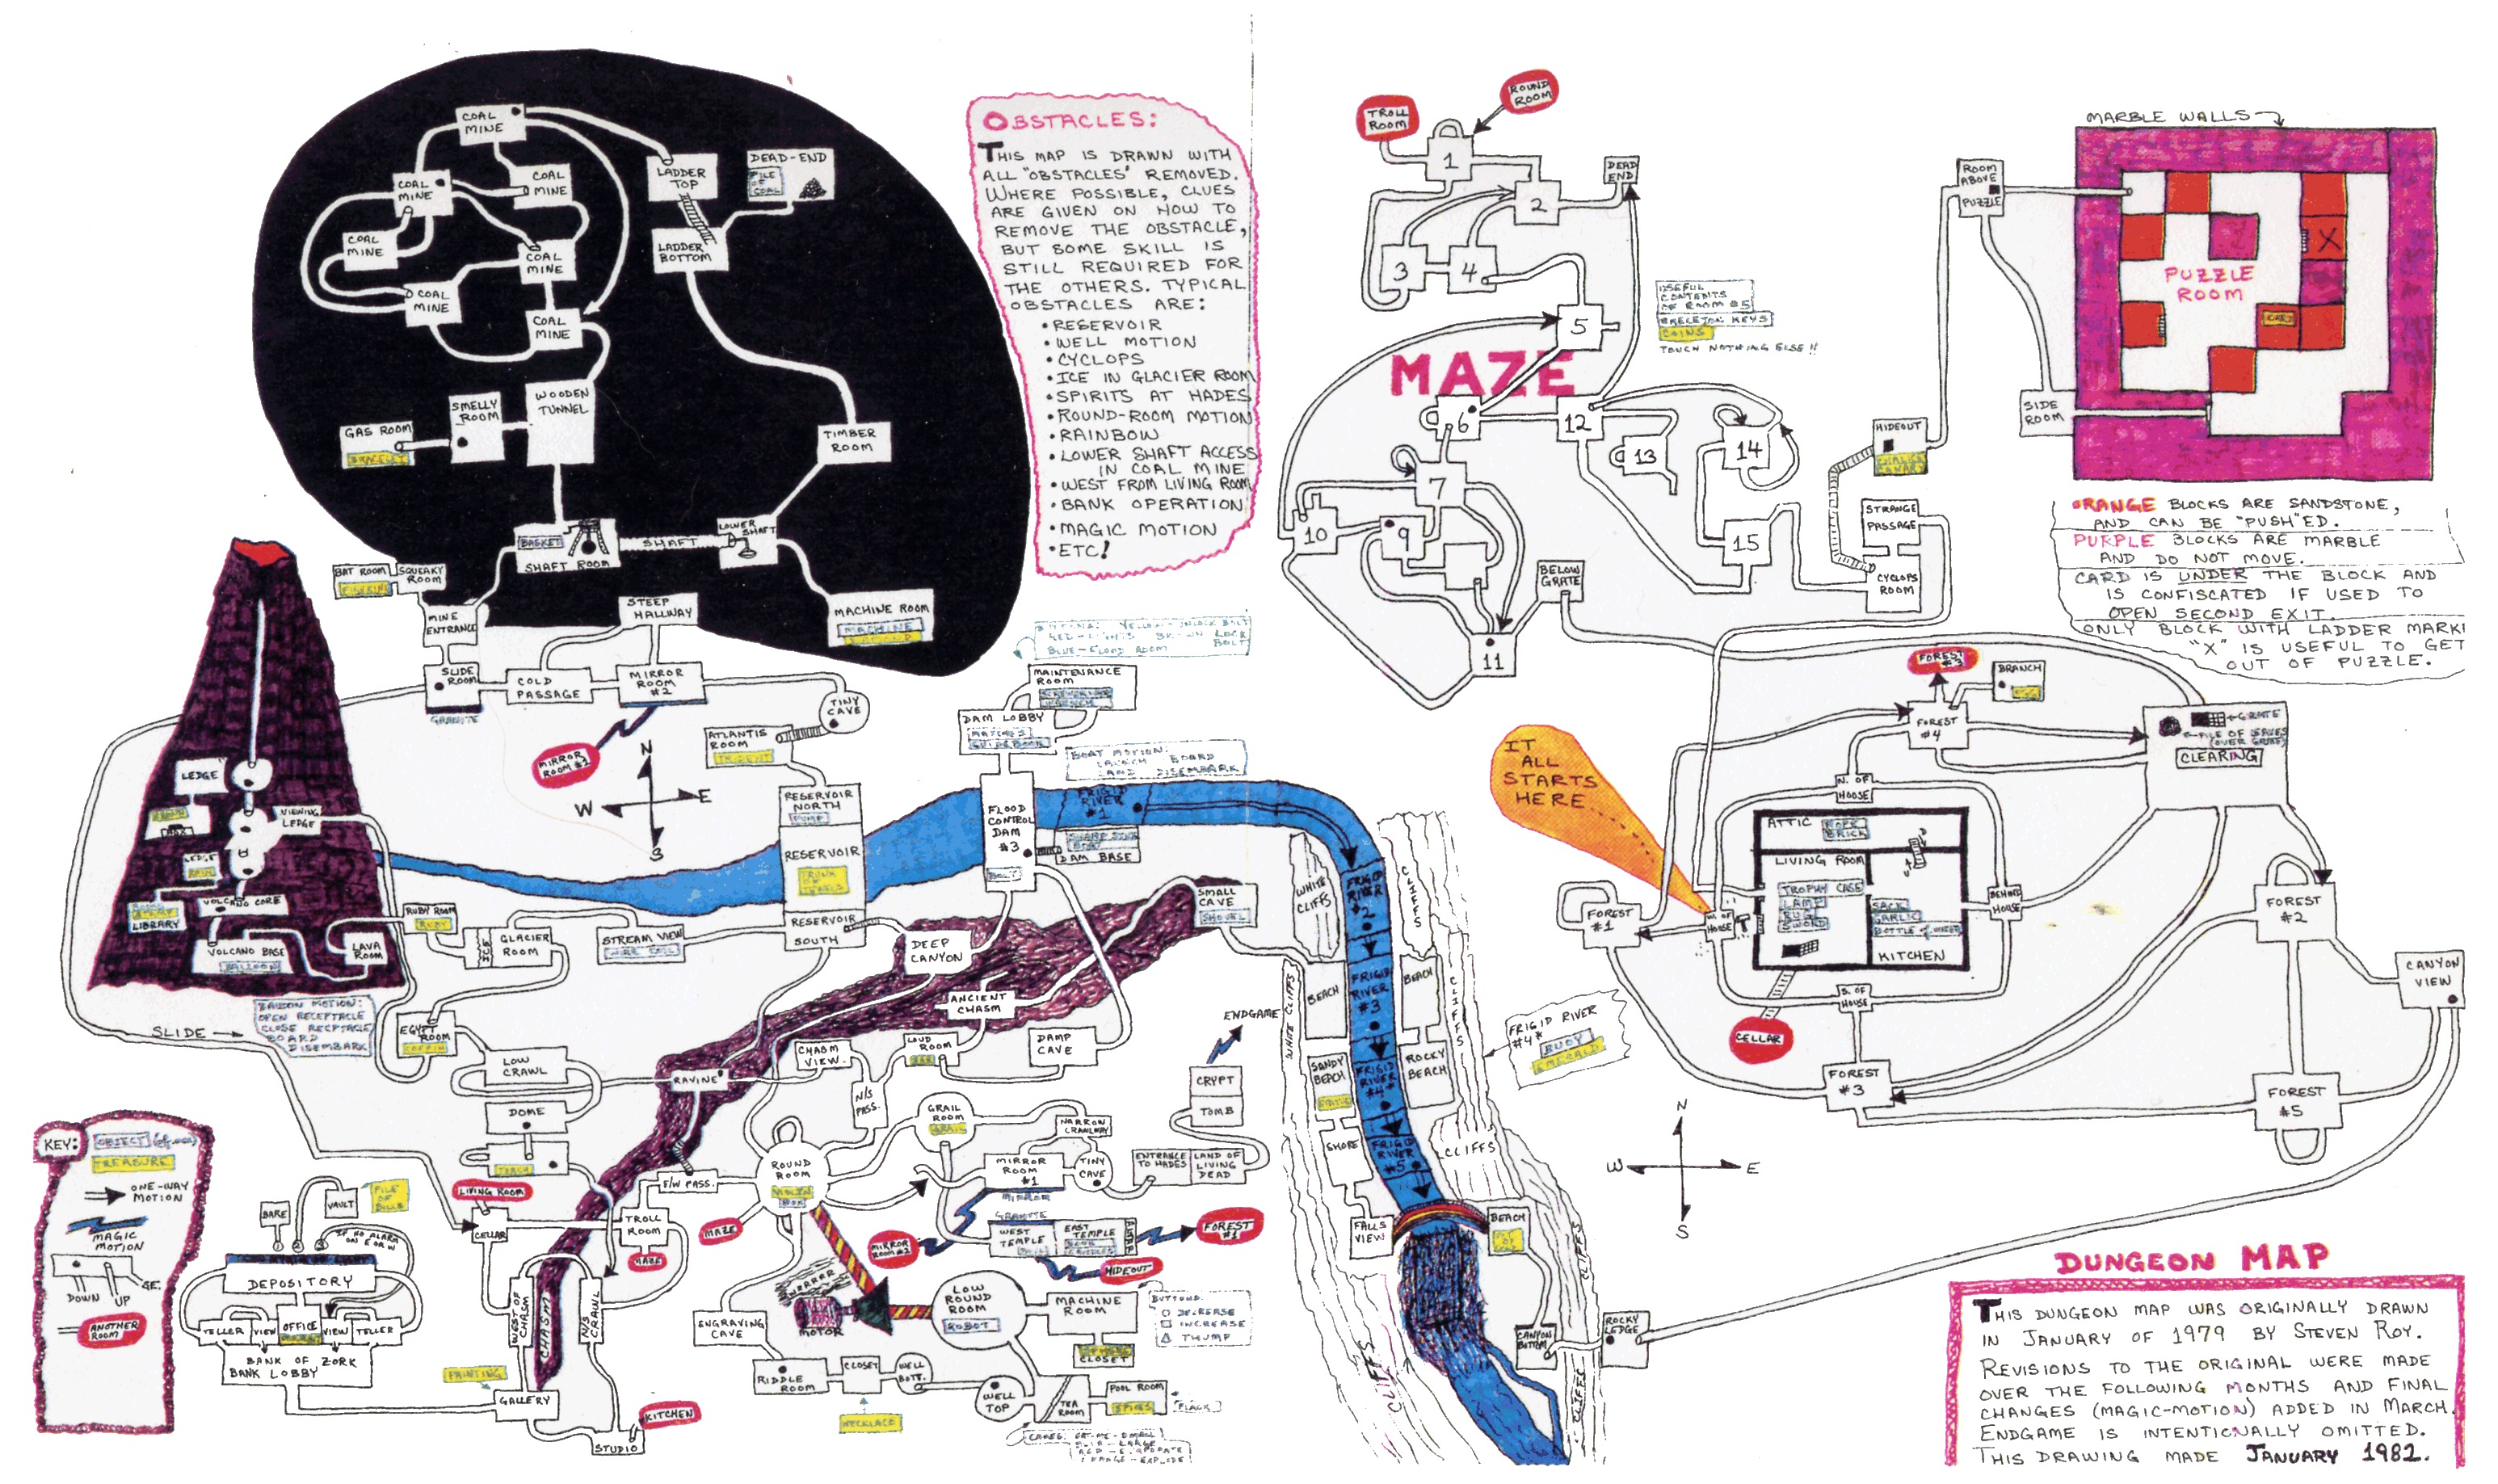 COAL
MINE
COAL
MINE
COAL
MINE
COAL
MINE
COAL
MINE
COAL
MINE
COAL
MINE
LADDER
TOP
DEAD-END
PILE
OF
COAL
LADDER
BOTTOM
WOODEN
TUNNEL
SMELLY
ROOM
GAS ROOM
BRACELET
TIMBER
ROOM
BASKET
SHAFT
SHAFT ROOM
LOWER
SHAFT
MACHINE ROOM
MACHINE
DIAMOND
BAT ROOM
SQUEAKY
ROOM
MINE
ENTRANCE
STEEP
HALLWAY
SLIDE
ROOM
GRANITE
COLD
PASSAGE
MIRROR
ROOM
#2
TINY
CAVE
MIRROR
ROOM #1
N
W
E
S
ATLANTIS
ROOM
TRIDENT
OBSTACLES:
THIS MAP IS DRAWN WITH
ALL "OBSTACLES" REMOVED.
WHERE POSSIBLE, CLUES
ARE GIVEN ON HOW TO
REMOVE THE OBSTACLE,
BUT SOME SKILL IS
STILL REQUIRED FOR
THE OTHERS. TYPICAL
OBSTACLES ARE:
• RESERVOIR
• WELL MOTION
• CYCLOPS
• ICE IN GLACIER ROOM
• SPIRITS AT HADES
• ROUND-ROOM MOTION
• RAINBOW
• LOWER SHAFT ACCESS
IN COAL MINE
• WEST FROM LIVING ROOM
• BANK OPERATION
• MAGIC MOTION
• ETC!
BLUE-FLOOD ROOM
MAINTENANCE
ROOM
DAM LOBBY
MATCHES
GUIDEBOOK
BOAT MOTION:
LAUNCH BOARD
LAND DISEMBARK
RESERVOIR
NORTH
PUMP
RESERVOIR
TRUNK
OF
JEWELS
RESERVOIR
SOUTH
FLOOD
CONTROL
DAM
#3
BOLT
FRIGID
RIVER
#1
SHARP STICK
BOAT
DAM BASE
LEDGE
VIEWING
LEDGE
LEDGE
LIBRARY
VOLCANO CORE
VOLCANO BASE
BALLOON
LAVA
ROOM
RUBY ROOM
RUBY
GLACIER
ROOM
STREAM VIEW
DEEP
CANYON
SMALL
CAVE
SHOVEL
ANCIENT
CHASM
BALLOON MOTION:
OPEN RECEPTACLE
CLOSE RECEPTACLE
BOARD
DISEMBARK
SLIDE
EGYPT
ROOM
COFFIN
LOW
CRAWL
DOME
TORCH
RAVINE
CHASM
VIEW
LOUD
ROOM
BAR
DAMP
CAVE
N/S
PASS.
ENDGAME
CRYPT
TOMB
GRAIL
ROOM
GRAIL
NARROW
CRAWLWAY
MIRROR
ROOM
#1
MIRROR
TINY
CAVE
ENTRANCE
TO HADES
LAND OF
LIVING
DEAD
ROUND
ROOM
VIOLIN
BOX
E/W PASS.
MAZE
GRANITE
WEST
TEMPLE
EAST
TEMPLE
ALTAR
FOREST
#1
MIRROR
ROOM #2
HIDEOUT
KEY:
OBJECT (of use)
TREASURE
ONE-WAY
MOTION
MAGIC
MOTION
DOWN
UP
ANOTHER
ROOM
BARE
VAULT
PILE
OF
BILLS
1
2
3
IF NO ALARM
ON E OR W
DEPOSITORY
TELLER
VIEW
OFFICE
VIEW
TELLER
BANK OF ZORK
BANK LOBBY
LIVING ROOM
CELLAR
TROLL
ROOM
MAZE
WEST OF
CHASM
CHASM
N/S
CRAWL
PAINTING
GALLERY
STUDIO
KITCHEN
ENGRAVING
CAVE
RIDDLE
ROOM
CLOSET
NECKLACE
WELL
BOTT.
WELL
TOP
TEA
ROOM
POOL ROOM
SPICES
FLASK
CAKES: EAT-ME-SMALL
MOTOR
LOW
ROUND
ROOM
ROBOT
MACHINE
ROOM
CLOSET
BUTTONS:
DECREASE
INCREASE
THUMP
WHITE
CLIFFS
CLIFFS
FRIGID
RIVER
#2
FRIGID
RIVER
#3
FRIGID
RIVER
#4*
FRIGID
RIVER
#5
BEACH
BEACH
WHITE CLIFFS
CLIFFS
SANDY
BEACH
STATUE
ROCKY
BEACH
SHORE
CLIFFS
FALLS
VIEW
BEACH
POT OF
GOLD
CANYON
BOTTOM
ROCKY
LEDGE
CLIFFS
CLIFFS
CLIFFS
FRIGID RIVER
#4*
BUOY
EMERALD
TROLL
ROOM
ROUND
ROOM
1
2
3
4
5
DEAD
END
USEFUL
CONTENTS
OF ROOM #5
SKELETON KEYS
COINS
TOUCH NOTHING ELSE!!
MAZE
6
7
9
10
11
12
13
14
15
BELOW
GRATE
HIDEOUT
CHALICE
CANARY
STRANGE
PASSAGE
CYCLOPS
ROOM
ROOM
ABOVE
PUZZLE
SIDE
ROOM
MARBLE WALLS
PUZZLE
ROOM
CARD
X
ORANGE BLOCKS ARE SANDSTONE,
AND CAN BE "PUSH"ED.
PURPLE BLOCKS ARE MARBLE
AND DO NOT MOVE.
CARD IS UNDER THE BLOCK AND
IS CONFISCATED IF USED TO
OPEN SECOND EXIT.
ONLY BLOCK WITH LADDER MARKI
"X" IS USEFUL TO GET
OUT OF PUZZLE.
IT
ALL
STARTS
HERE
FOREST
#3
BRANCH
EGG
FOREST
#4
GRATE
PILE OF LEAVES
(OVER GRATE)
CLEARING
N. OF
HOUSE
ATTIC
ROPE
BRICK
LIVING ROOM
TROPHY CASE
LAMP
RUG
SWORD
SACK
GARLIC
BOTTLE OF WATER
KITCHEN
D
U
BEHIND
HOUSE
W. OF
HOUSE
S. OF
HOUSE
CELLAR
FOREST
#1
FOREST
#2
FOREST
#3
FOREST
#5
CANYON
VIEW
N
W
E
S
DUNGEON MAP
THIS DUNGEON MAP WAS ORIGINALLY DRAWN
IN JANUARY OF 1979 BY STEVEN ROY.
REVISIONS TO THE ORIGINAL WERE MADE
OVER THE FOLLOWING MONTHS AND FINAL
CHANGES (MAGIC-MOTION) ADDED IN MARCH.
ENDGAME IS INTENTIONALLY OMITTED.
THIS DRAWING MADE JANUARY 1982.